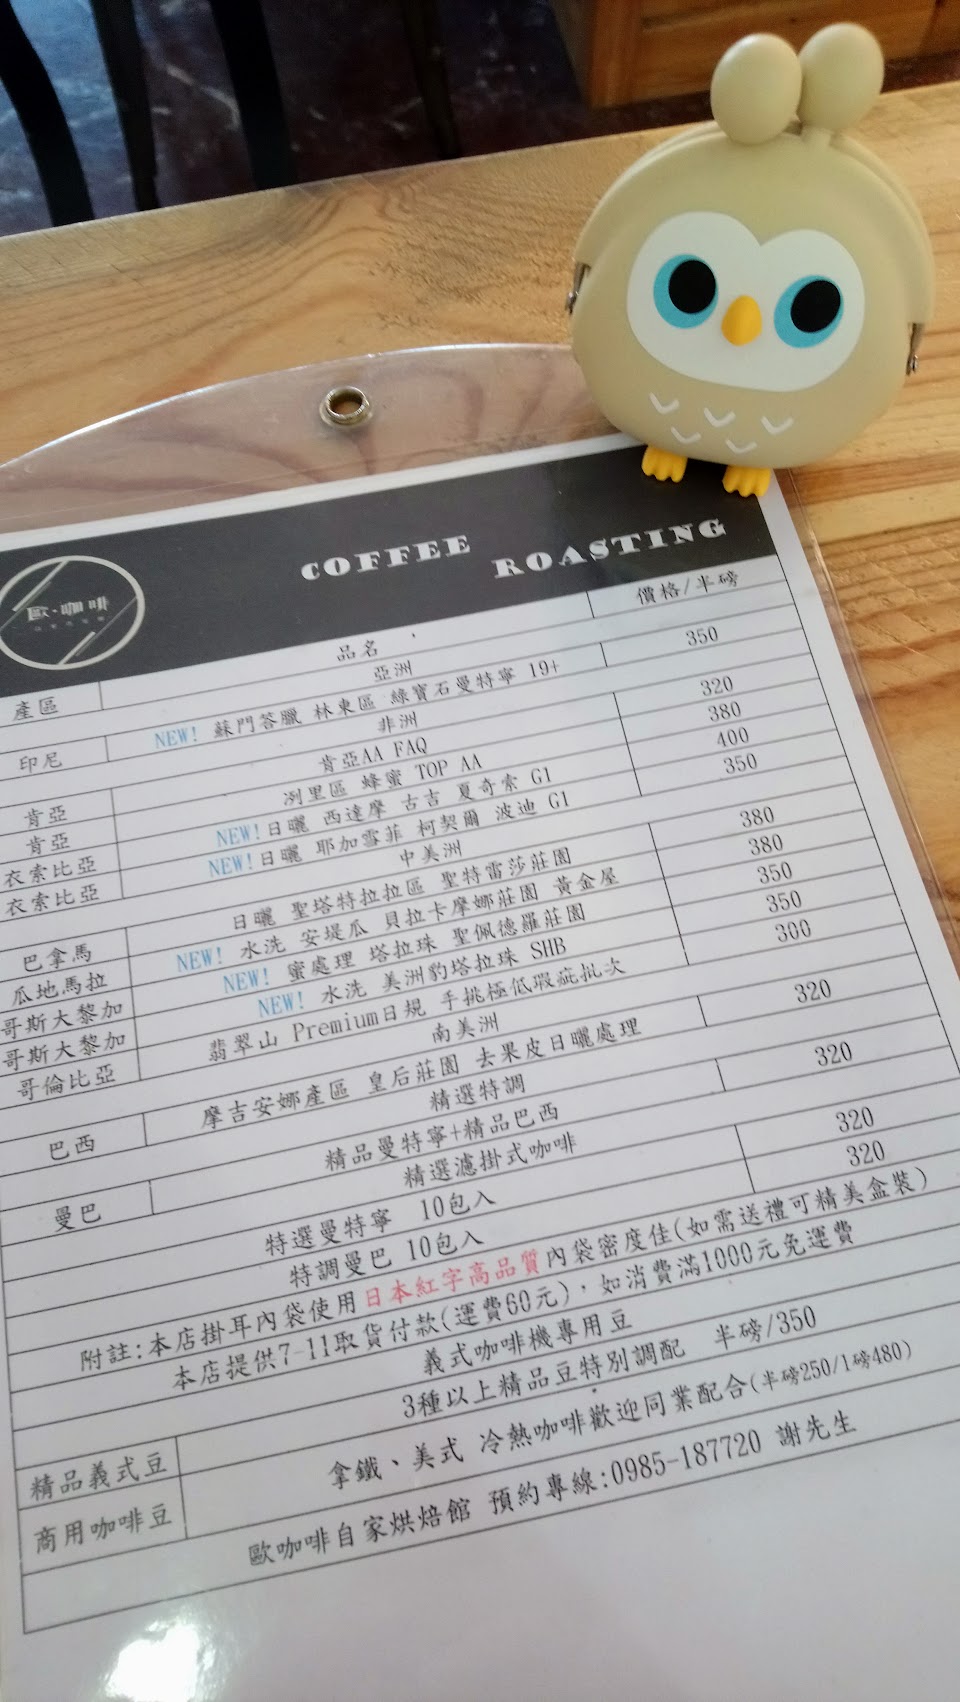 COFFEE ROASTING
歐·咖啡
產區 品名 價格/半磅
亞洲
印尼 NEW! 蘇門答臘 林東區 綠寶石曼特寧 19+ 350
非洲
肯亞 肯亞AA FAQ 320
肯亞 冽里區 蜂蜜 TOP AA 380
衣索比亞 NEW!日曬 西達摩 古吉 夏奇索 G1 400
衣索比亞 NEW!日曬 耶加雪菲 柯契爾 波迪 G1 350
中美洲
巴拿馬 日曬 聖塔特拉拉區 聖特雷莎莊園 380
瓜地馬拉 NEW! 水洗 安堤瓜 貝拉卡摩娜莊園 黃金屋 380
哥斯大黎加 NEW! 蜜處理 塔拉珠 聖佩德羅莊園 350
哥斯大黎加 NEW! 水洗 美洲豹塔拉珠 SHB 350
哥倫比亞 翡翠山 Premium日規 手挑極低瑕疵批次 300
南美洲
巴西 摩吉安娜產區 皇后莊園 去果皮日曬處理 320
精選特調
曼巴 精品曼特寧+精品巴西 320
精選濾掛式咖啡
特選曼特寧 10包入 320
特調曼巴 10包入 320
附註:本店掛耳內袋使用日本紅字高品質內袋密度佳(如需送禮可精美盒裝)
本店提供7-11取貨付款(運費60元)，如消費滿1000元免運費
義式咖啡機專用豆
精品義式豆 3種以上精品豆特別調配 半磅/350
商用咖啡豆 拿鐵、美式 冷熱咖啡歡迎同業配合(半磅250/1磅480)
歐咖啡自家烘焙館 預約專線:0985-187720 謝先生